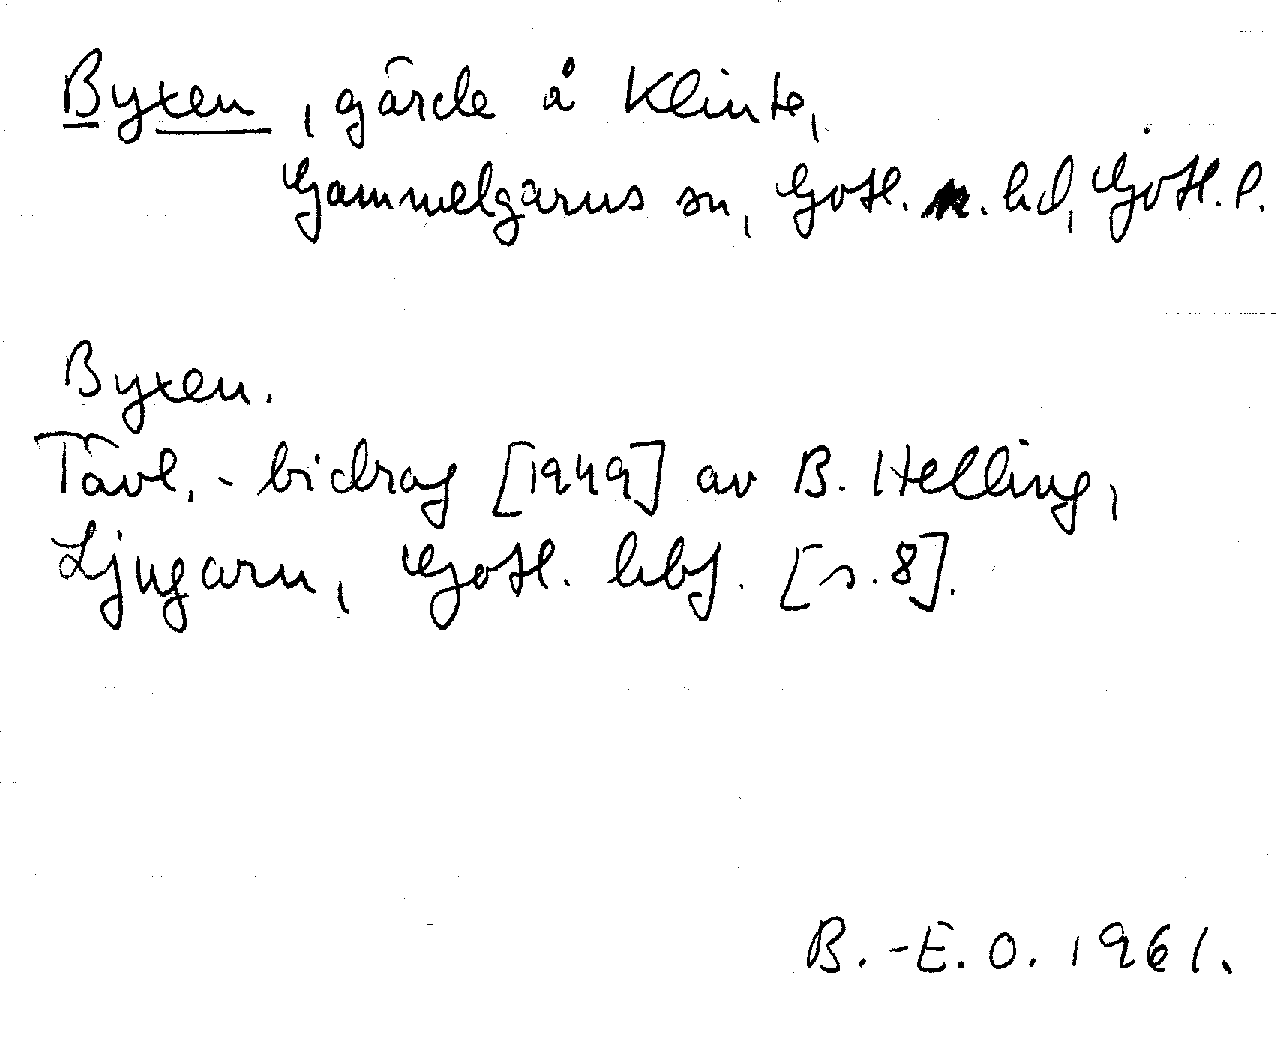 Byxen, gärde å Klinte,
Gammelgarns sn, Gotl. n. hd, Gotl. l.
Byxen.
Tävl.-bidrag [1949] av B. Helling,
Ljugarn, Gotl. hbf. [s. 8].
B.-E. O. 1961.